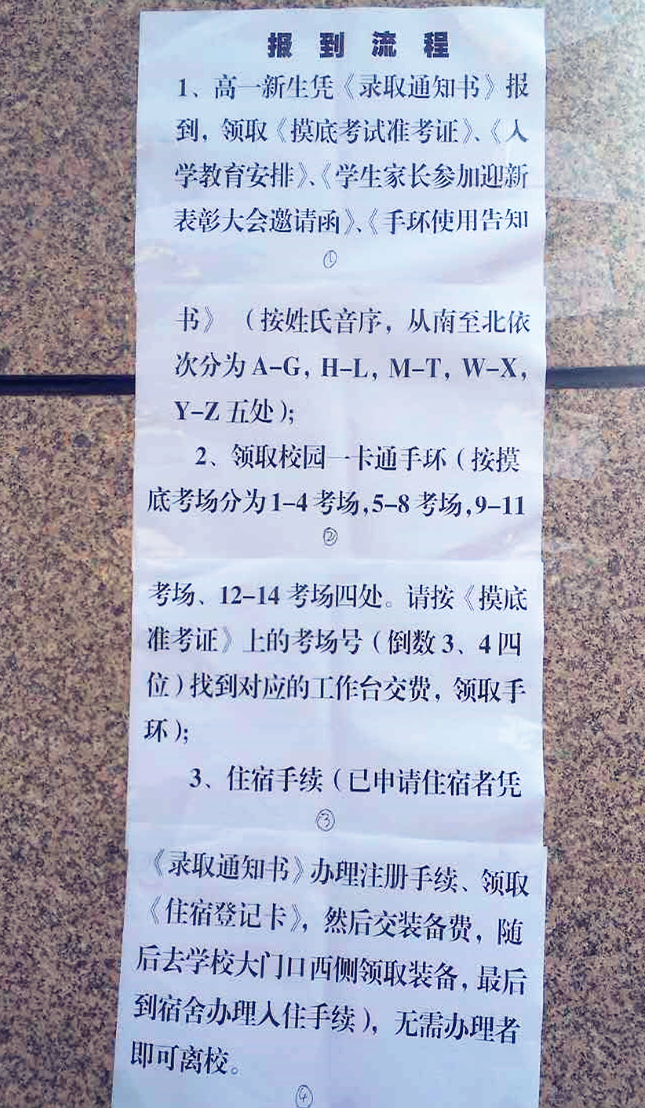 报到流程
1、高一新生凭《录取通知书》报
到，领取《摸底考试准考证》、《入
学教育安排》、《学生家长参加迎新
表彰大会邀请函》、《手环使用告知
①
书》（按姓氏音序，从南至北依
次分为 A-G，H-L，M-T，W-X，
Y-Z 五处）；
2、领取校园一卡通手环（按摸
底考场分为1-4考场,5-8考场,9-11
②
考场、12-14考场四处。请按《摸底
准考证》上的考场号（倒数3、4四
位）找到对应的工作台交费，领取手
环）；
3、住宿手续（已申请住宿者凭
③
《录取通知书》办理注册手续、领取
《住宿登记卡》，然后交装备费，随
后去学校大门口西侧领取装备，最后
到宿舍办理入住手续），无需办理者
即可离校。
④